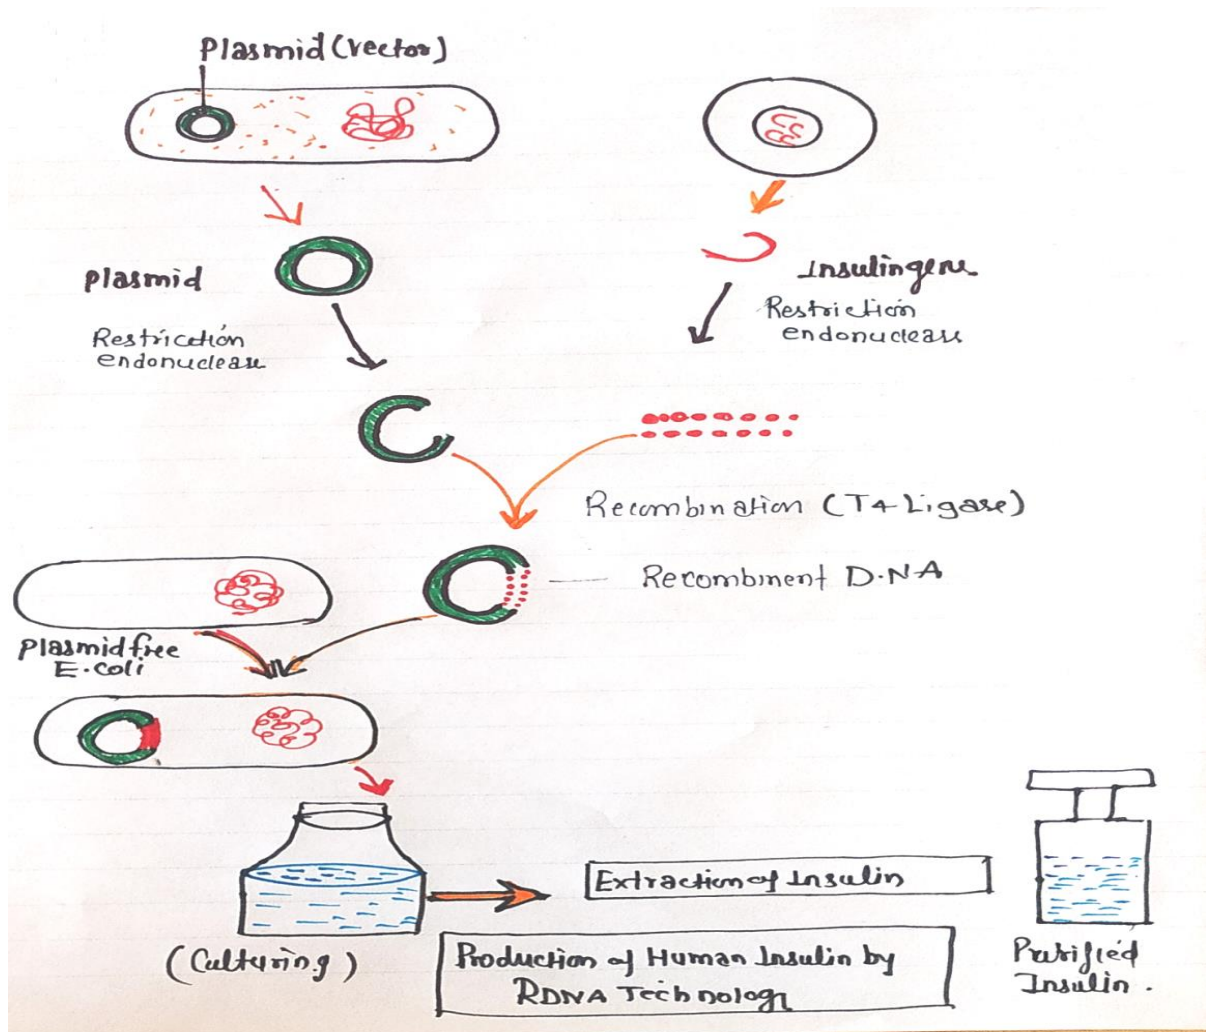 Plasmid (vector)
Plasmid
Insulingene
Restrication
endonuclease
Restriction
endonuclease
Recombination (T4 Ligase)
Recombinent D.NA
Plasmid free
E.coli
Extraction of Insulin
(Culturing)
Production of Human Insulin by
RDNA Technology
Purified
Insulin.